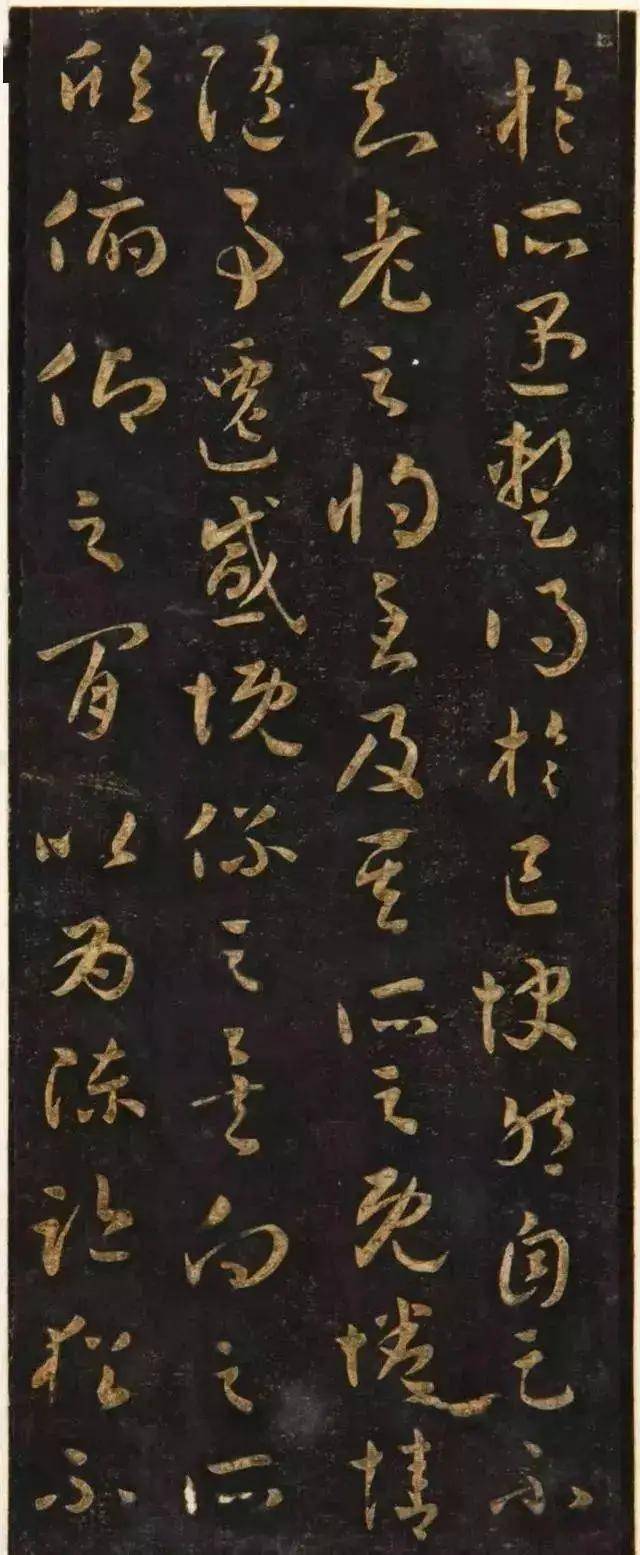 於所遇蹔得於己快然自足不
知老之將至及其所之既惓情
隨事遷感慨係之矣向之所
欣俯仰之間以為陳跡猶不